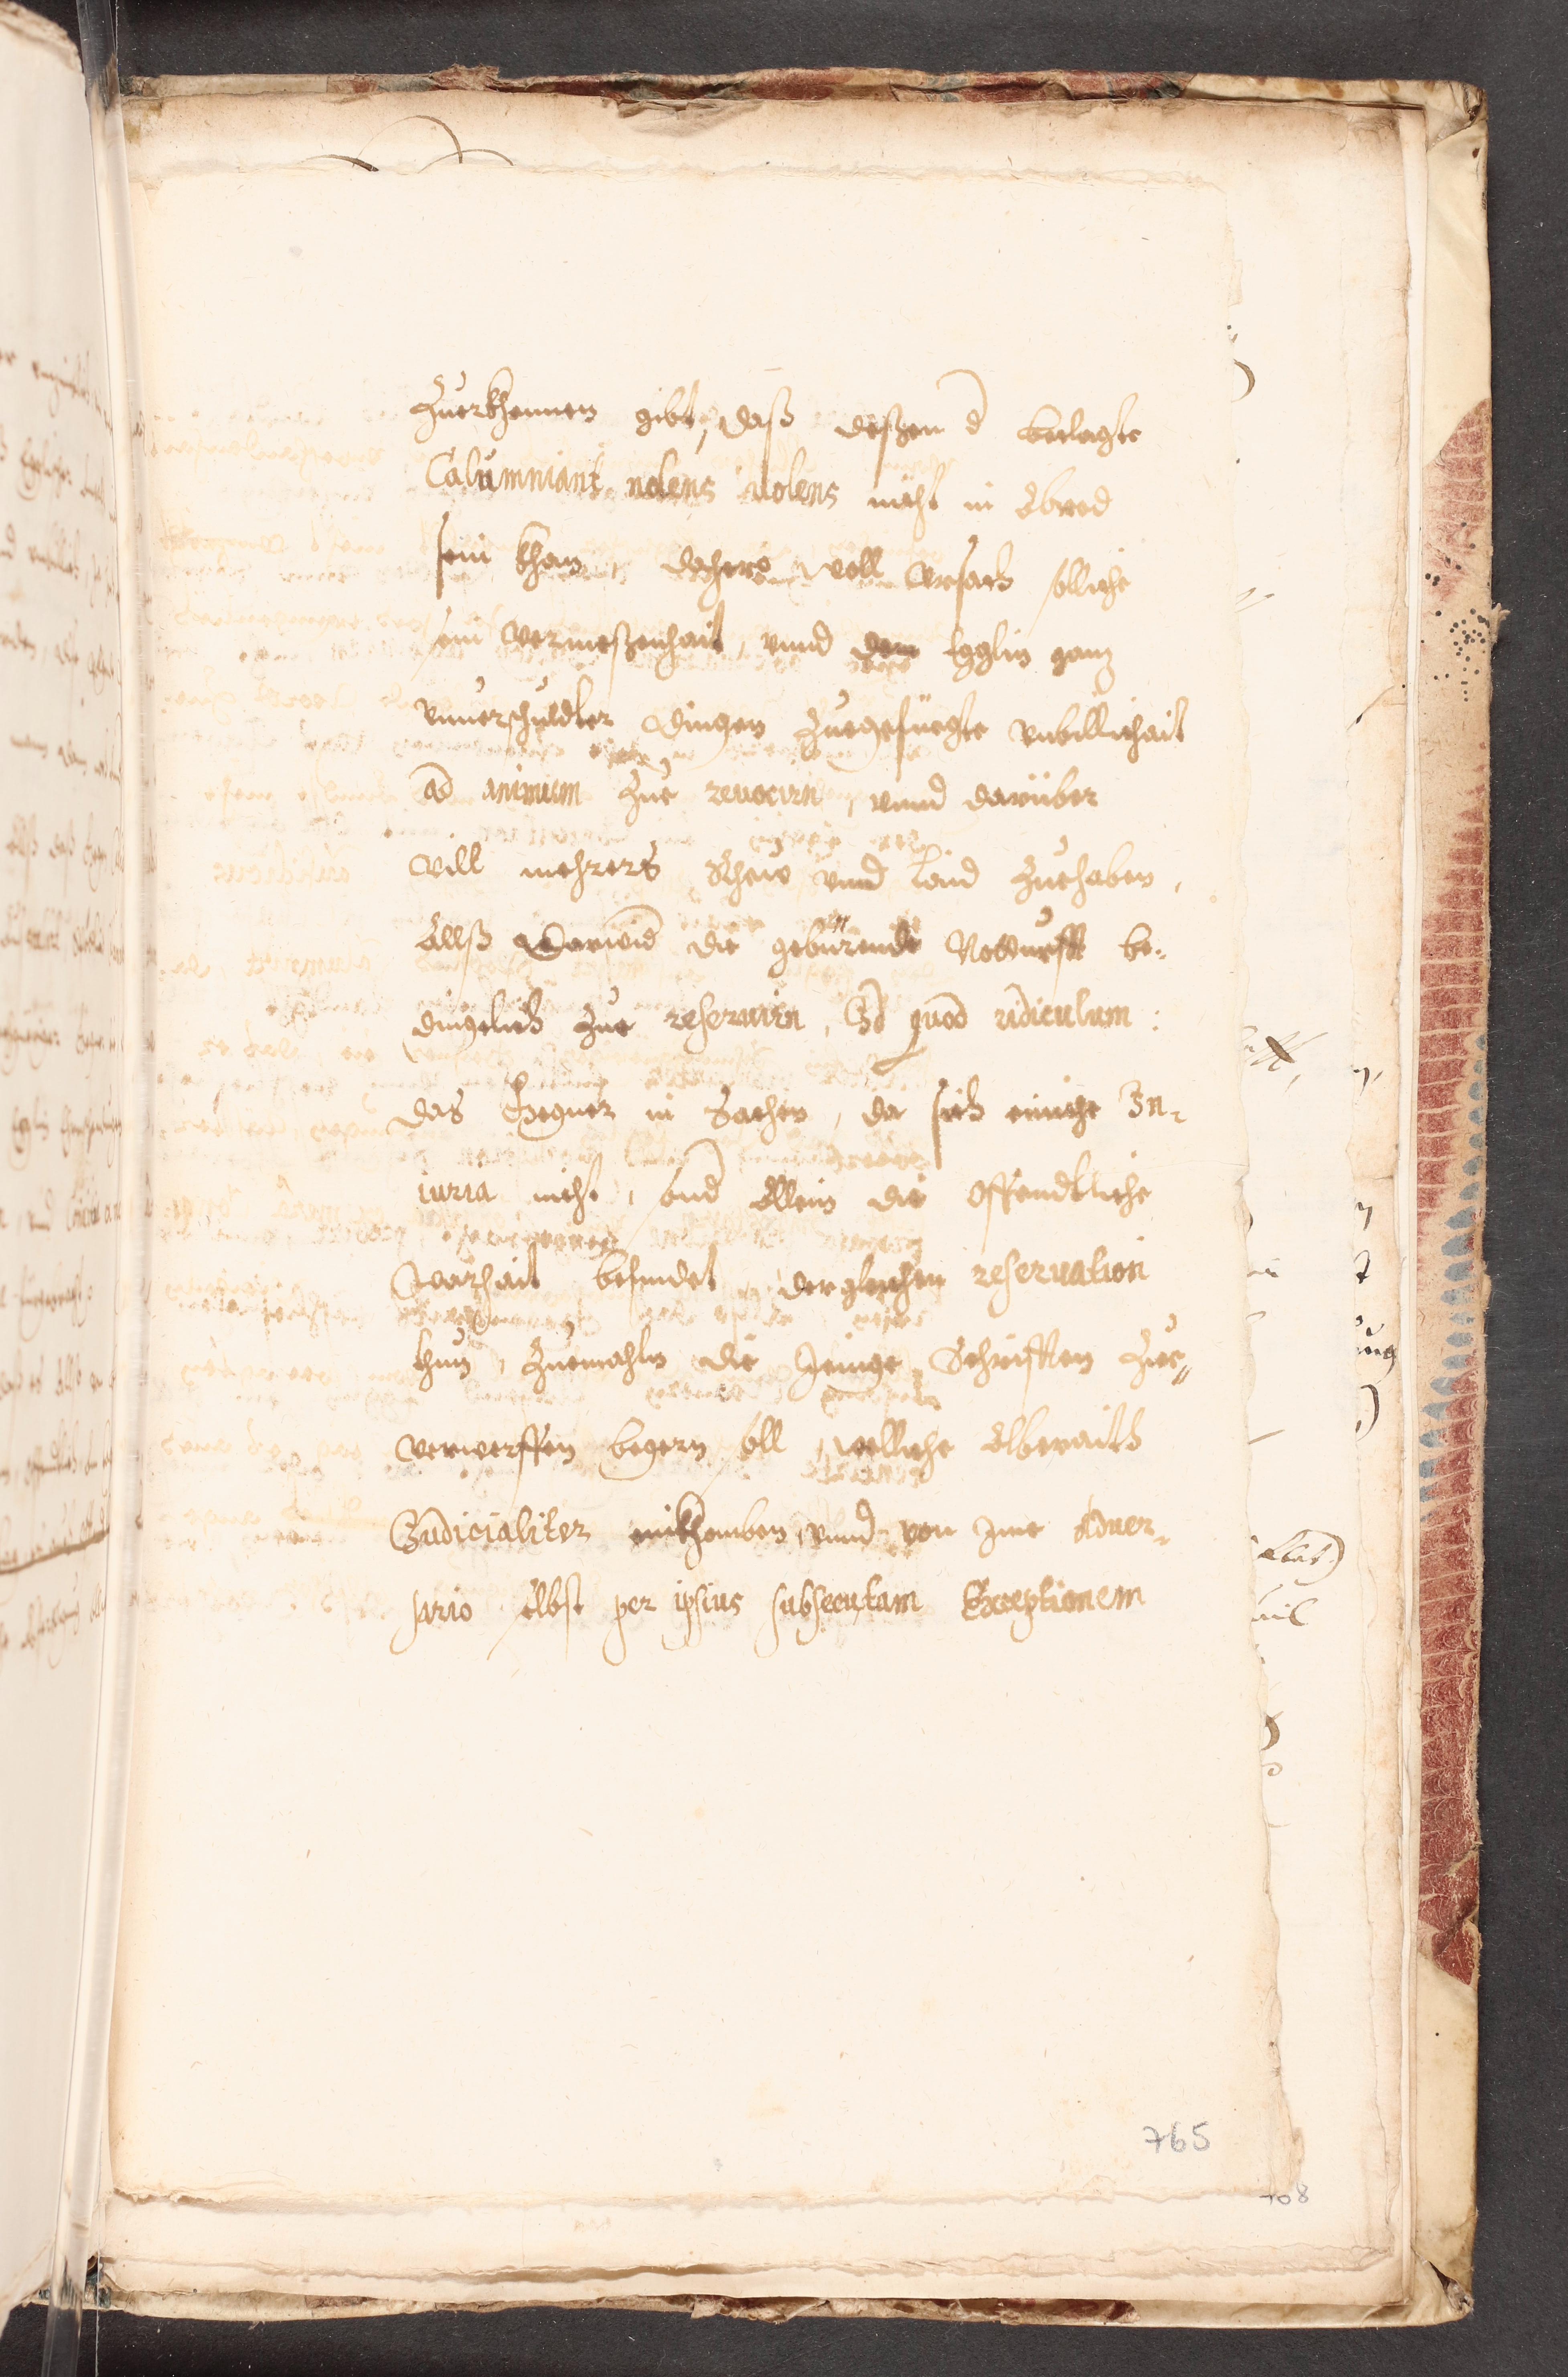 Zuerkhennen gibt, daß deßen d beclagte
Calumniant nolens uolens nicht in Abred
sein khan, dahero woll Vrsach solliche
sein Vermeßenhait, vnnd dem Egglin ganz
vnuerschuldter Dingen Zuegefüegte vnbillichait
ad animum Zue reuocirn, vnnd darüber
vill mehrers Rhew vnnd Laid Zuehaben,
Allß Darwid die gebürende Notturfft be-
dinglich Zue reseruirn, Et quod ridiculum:
das Gegner in Sachen, da sich einiche In-
iuria nicht, sond allein die Offendtliche
Warhait befindet, dergleichen reseruation
thun, Zuemahln die Jenige Schrifften Zue
verwerffen begern soll, welliche Alberaith
Judicialiter einkhomben, vnnd von Ime Aduer-
sario selbst per ipsius subsecutam Exceptionem
765
708